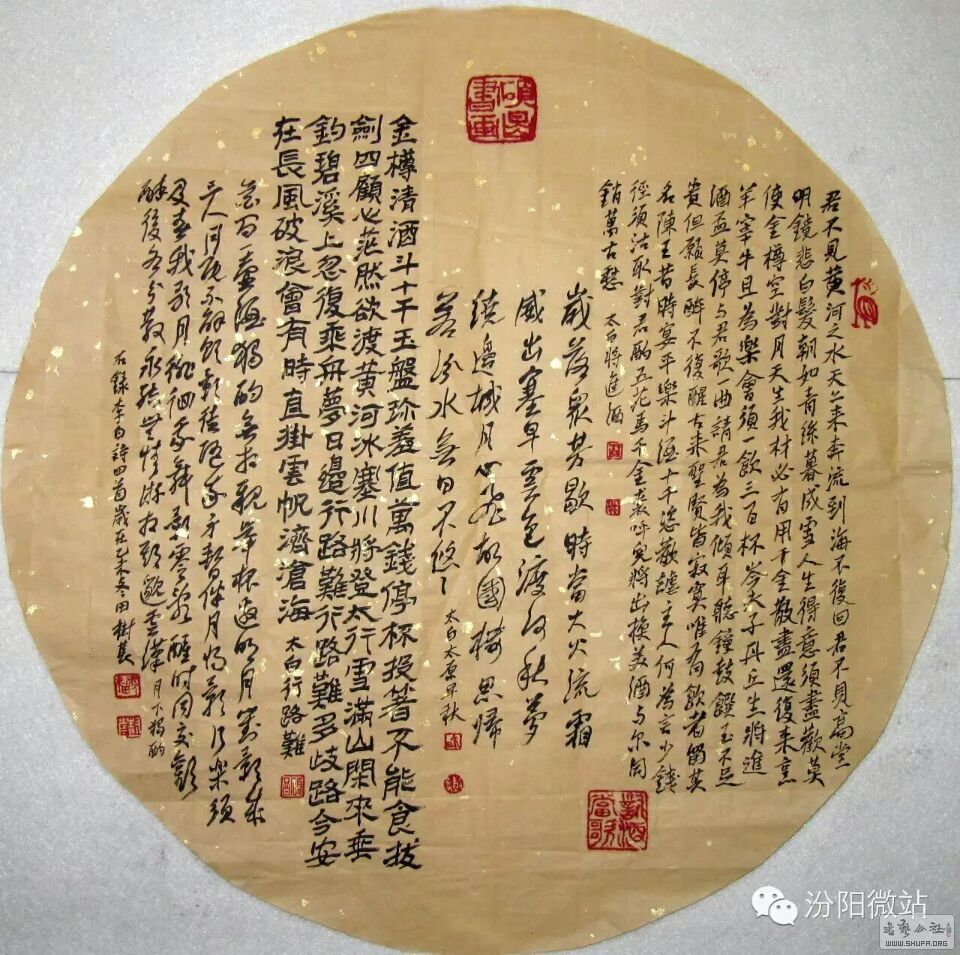 君不見黃河之水天上来奔流到海不復回君不見高堂
明鏡悲白髮朝如青絲暮成雪人生得意須盡歡莫
使金樽空對月天生我材必有用千金散盡還復来烹
羊宰牛且為樂會須一飲三百杯岑夫子丹丘生將進
酒盃莫停与君歌一曲請君為我傾耳聽鐘鼓饌玉不足
貴但願長醉不復醒古来聖賢皆寂寞唯有飲者留其
名陳王昔時宴平樂斗酒十千恣歡謔主人何為言少錢
徑須沽取對君酌五花馬千金裘呼兒將出換美酒与尔同
銷萬古愁 太白將進酒
歲落眾芳歇時當大火流霜
威出塞早雲色渡河秋夢
繞邊城月心飛故國樓思歸
若汾水無日不悠々 太白太原早秋
金樽清酒斗十千玉盤珍羞值萬錢停杯投箸不能食拔
劍四顧心茫然欲渡黃河冰塞川將登太行雪滿山閑來垂
釣碧溪上忽復乘舟夢日邊行路難行路難多歧路今安
在長風破浪會有時直掛雲帆濟滄海 太白行路難
花間一壺酒獨酌無相親舉杯邀明月對影成
三人月既不解飲影徒隨我身暫伴月將影行樂須
及春我歌月徘徊我舞影零亂醒時同交歡
醉後各分散永結無情遊相期邈雲漢 月下獨酌
右錄李白詩四首歲在乙未冬田樹萇
對酒當歌
汾阳微站
WWW.SHUFA.ORG